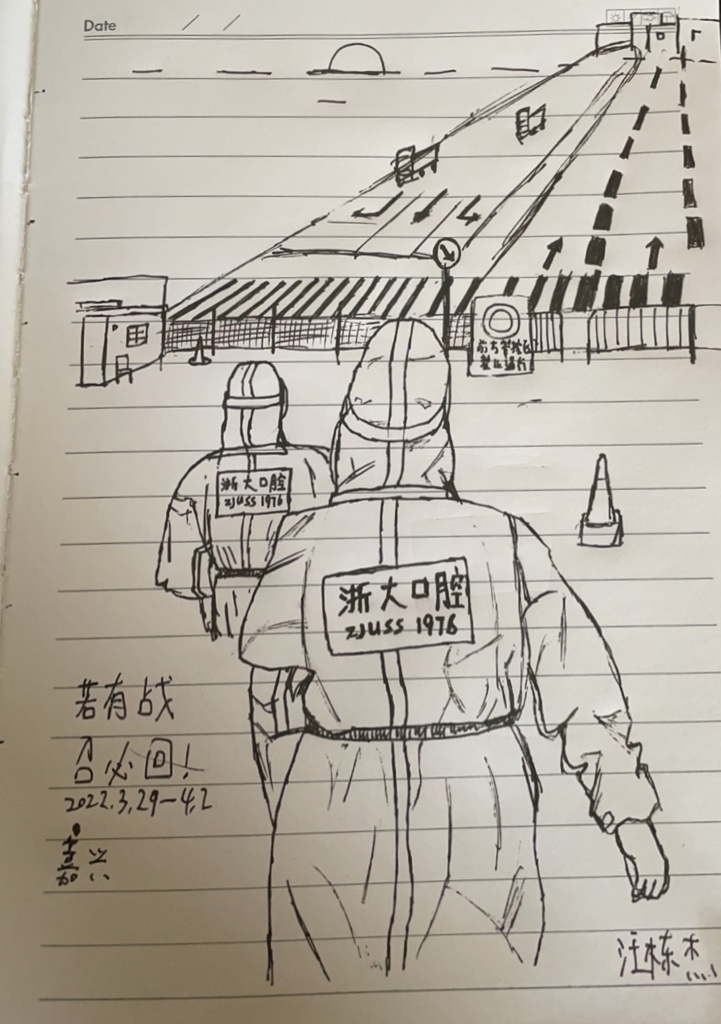 Date / /
前方管控区
禁止通行
浙大口腔
ZJUSS 1976
浙大口腔
ZJUSS 1976
若有战
召必回!
2022.3.29-4.2
嘉兴
汪栋杰